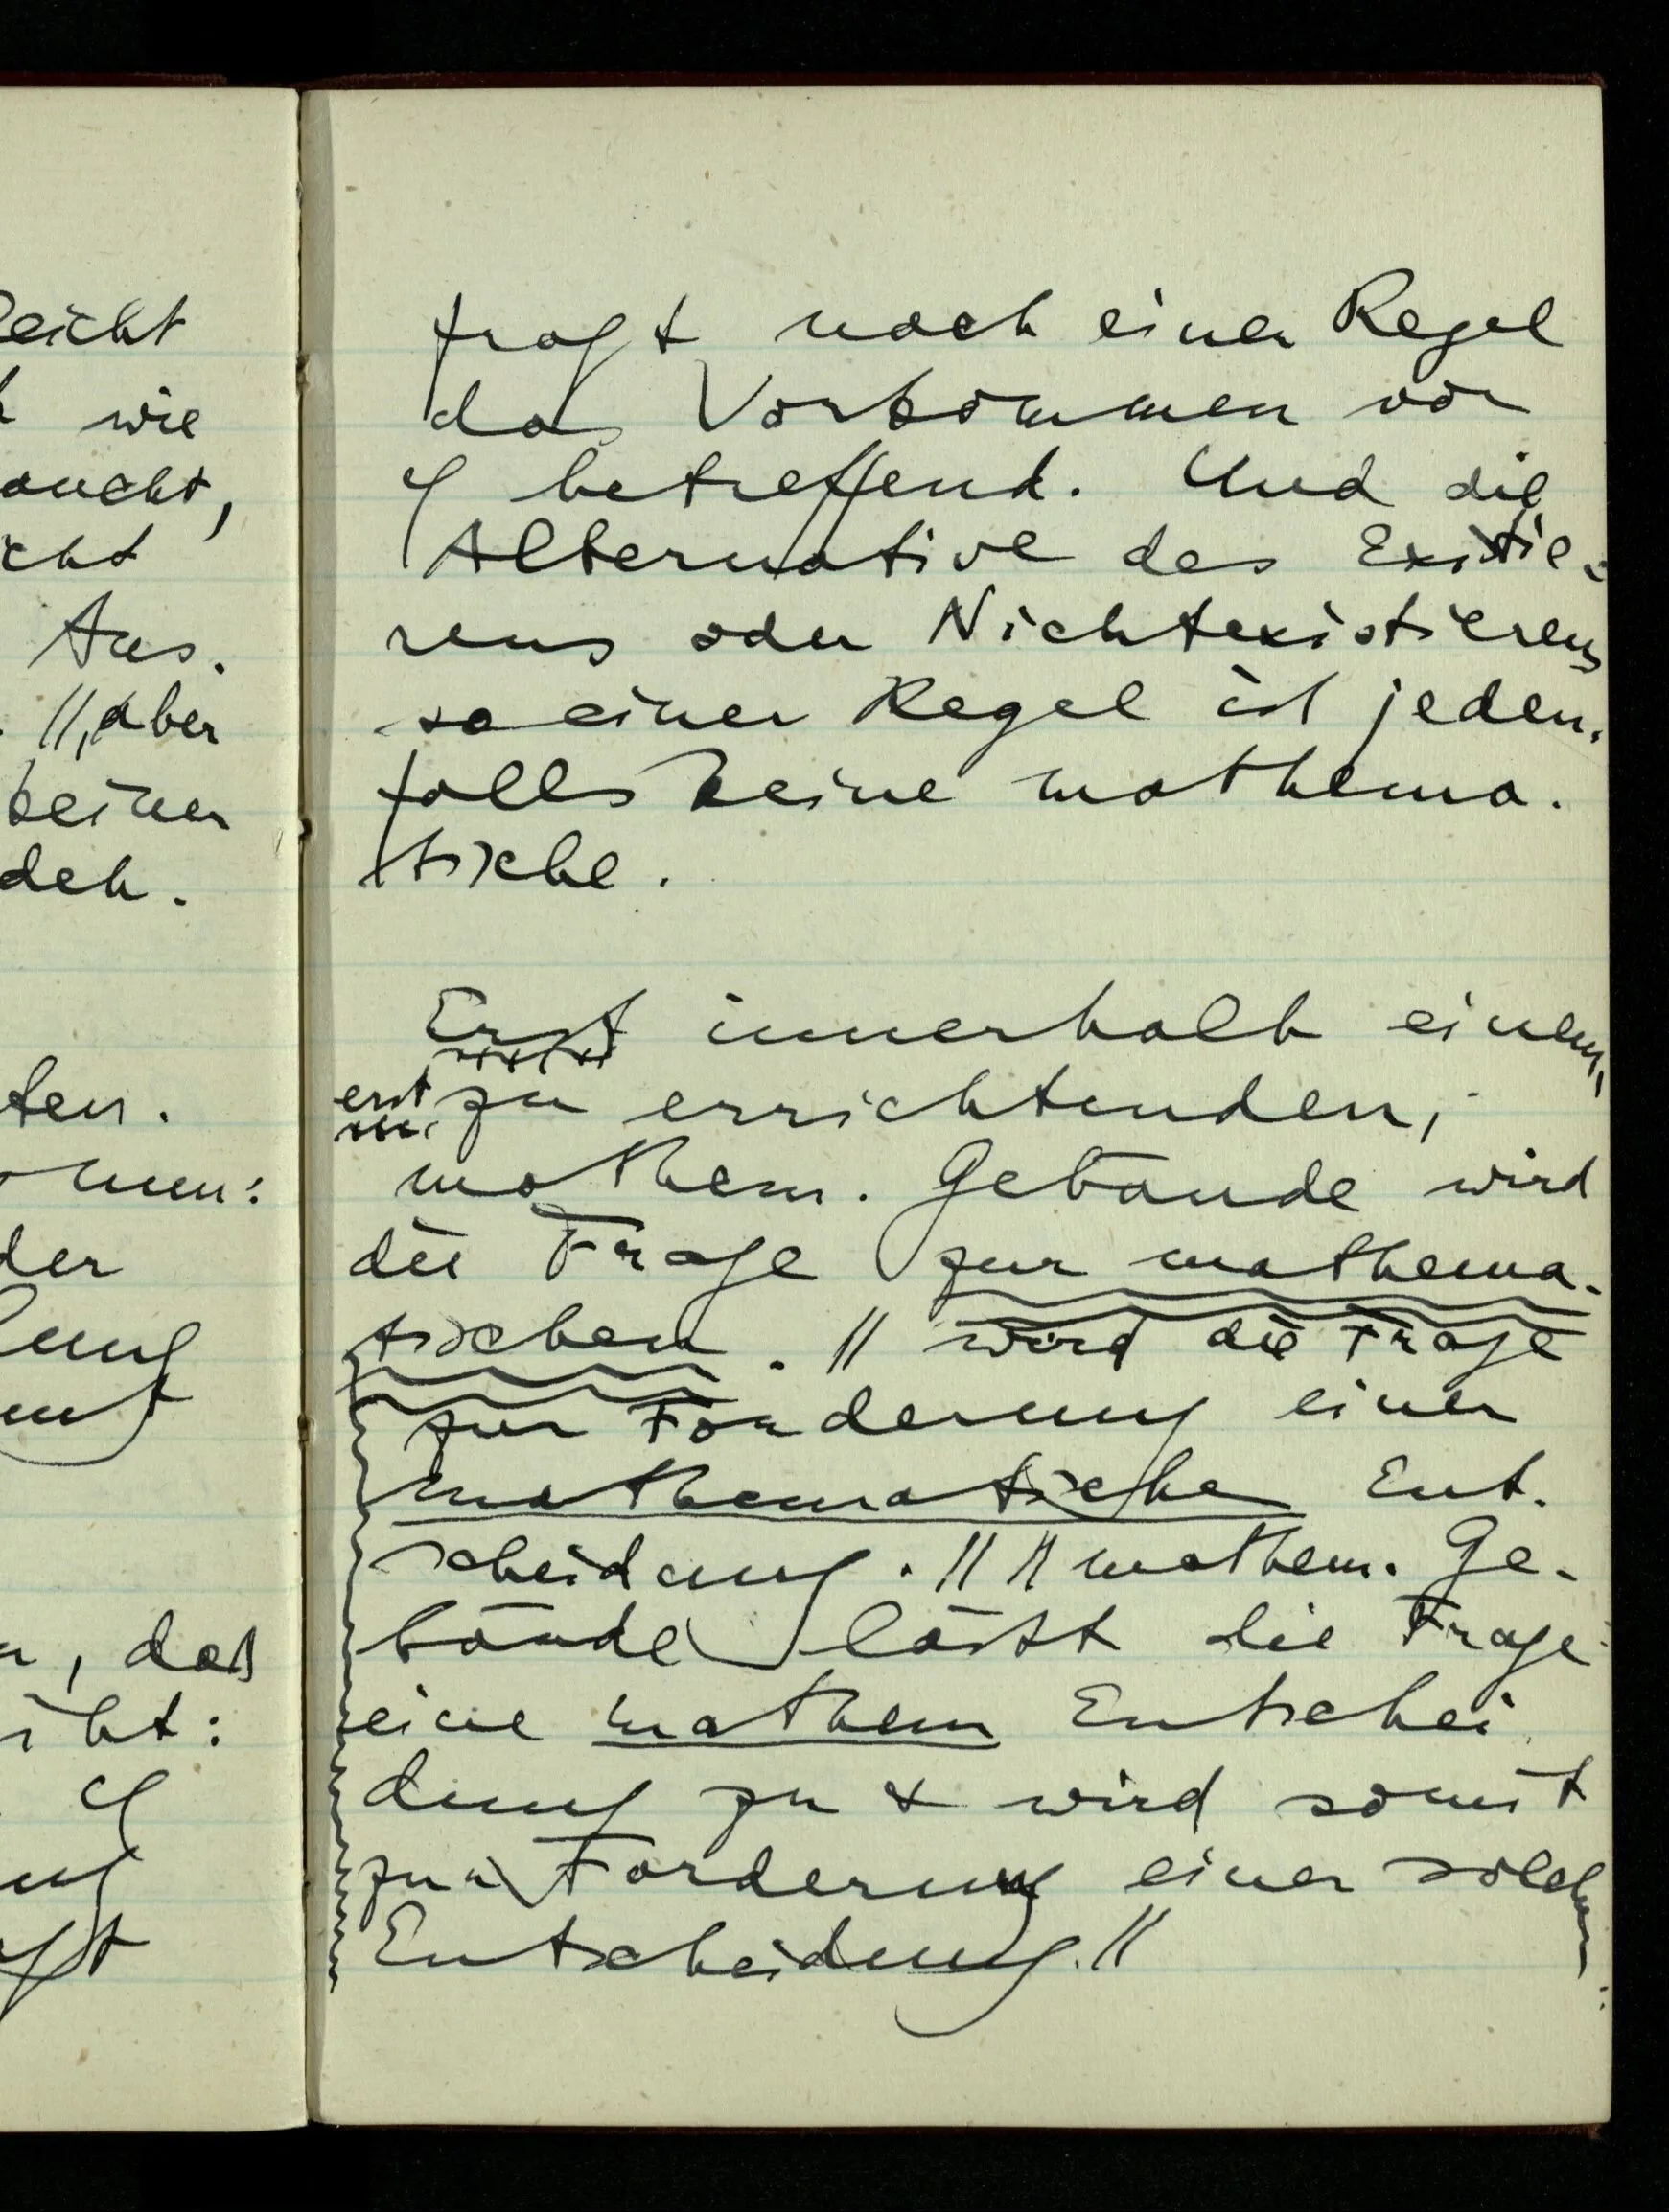 leicht
wie
aucht,
icht
Aus.
//, aber
keiner
deh.
ten.
der
, daß
ibt:
φ
fragt nach einer Regel
das Vorkommen von
φ betreffend. Und die
Alternative des Existie-
rens oder Nichtexistierens
so einer Regel ist jeden-
falls keine mathema-
tische.
Erst innerhalb eines,
erst zu errichtenden,
mathem. Gebäude wird
die Frage zur mathema-
tischen. // wird die Frage
zur Forderung einer
mathematischen Ent-
scheidung. // // mathem. Ge-
bäude läßt die Frage
eine mathem Entschei
dung zu & wird somit
zur Forderung einer solchen
Entscheidung. //